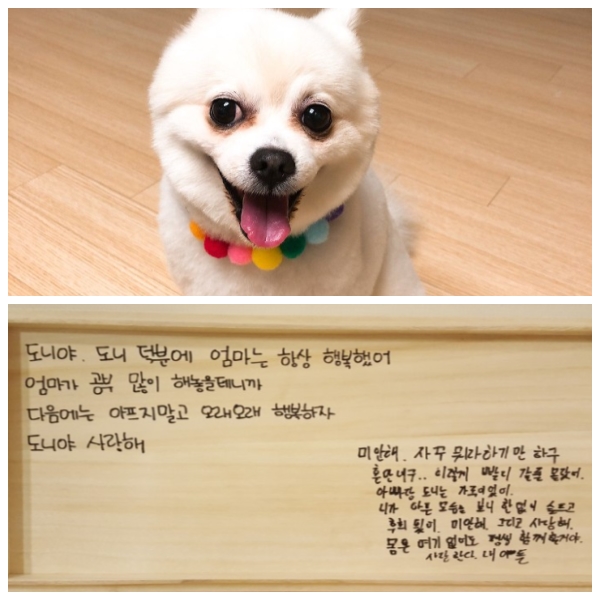 도니야. 도니 덕분에 엄마는 항상 행복했어
엄마가 공부 많이 해놓을테니까
다음에는 아프지말고 오래오래 행복하자
도니야 사랑해
미안해. 자꾸 뭐라하기만 하구
혼만내구.. 이렇게 빨리 갈줄 몰랐어.
아빠랑 도니는
니가 아픈 모습을 보니 한없이 슬프고
후회 됬어. 미안해. 그리고 사랑해.
몸은 여기 없어도 평생 함께 할거야.
사랑한다. 내 아들